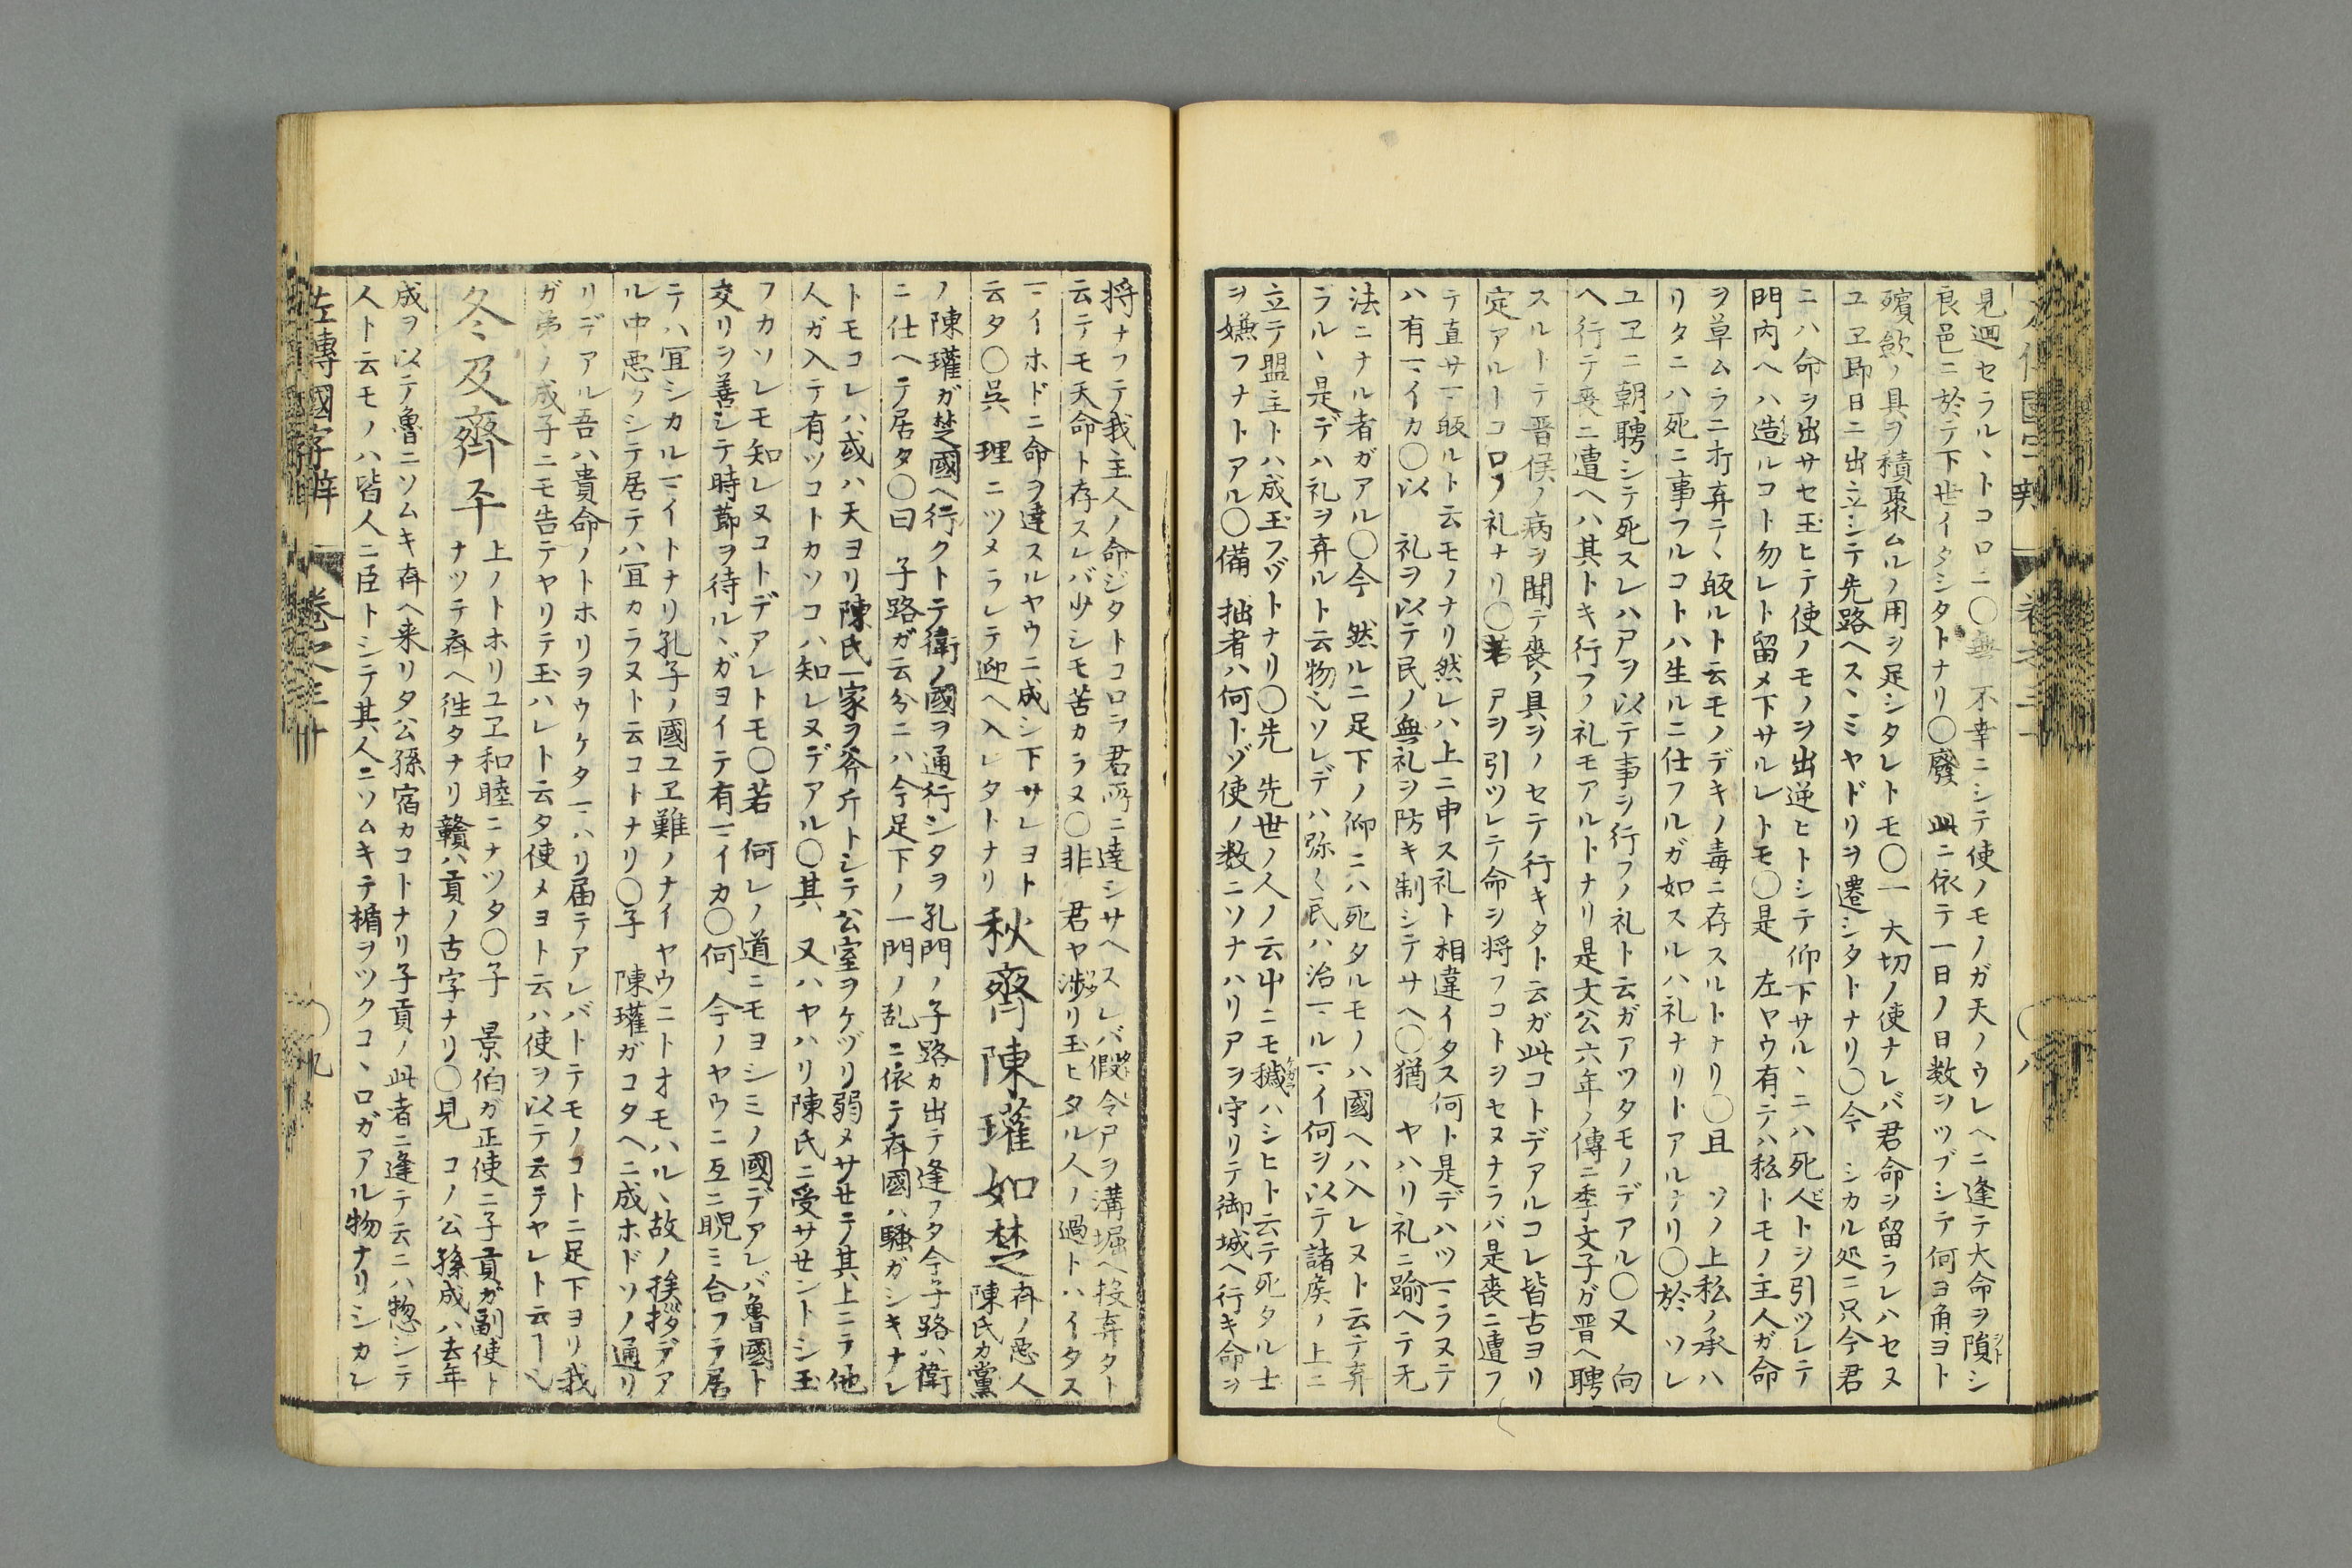 見廻セラル丶トコロニ〇無 不幸ニシテ使ノモノガ天ノウレヘニ逢テ大命ヲ隕シ
良邑ニ於テ下世イタシタトナリ〇廢 此ニ依テ一日ノ日数ヲツブシテ何ヨ角ヨト
殯歛ノ具ヲ積聚ムルノ用ヲ足シタレトモ〇一 大切ノ使ナレバ君命ヲ留ラレハセヌ
ユヱ即日ニ出立シテ先路ヘスヽミヤドリヲ遷シタトナリ〇今 シカル処ニ只今君
ニハ命ヲ出サセ玉ヒテ使ノモノヲ出逆ヒトシテ仰下サル丶ニハ死人トヲ引ツレテ
門内ヘハ造ルコト勿レト留メ下サルレトモ〇是 左ヤウ有テハ私トモノ主人ガ命
ヲ草ムラニ打弃テ丶皈ルト云モノデキノ毒ニ存スルトナリ〇且 ソノ上私ノ承ハ
リタニハ死ニ事フルコトハ生ルニ仕フルガ如スルハ礼ナリトアルナリ〇於 ソレ
ユヱニ朝聘シテ死スレハ尸ヲ以テ事ヲ行フノ礼ト云ガアツタモノデアル〇又 向
ヘ行テ喪ニ遭ヘハ其トキ行フノ礼モアルトナリ是文公六年ノ傳ニ季文子ガ晋ヘ聘
スルトテ晋侯ノ病ヲ聞テ喪ノ具ヲノセテ行キタト云ガ此コトデアルコレ皆古ヨリ
定アルトコロノ礼ナリ〇若 尸ヲ引ツレテ命ヲ将フコトヲセヌナラバ是喪ニ遭フ
テ直サヿ皈ルト云モノナリ然レハ上ニ申ス礼ト相違イタス何ト是デハツヿラヌテ
ハ有ヿイカ〇以 礼ヲ以テ民ノ無礼ヲ防キ制シテサヘ〇猶 ヤハリ礼ニ踰ヘテ无
法ニナル者ガアル〇今 然ルニ足下ノ仰ニハ死タルモノハ國ヘハ入レヌト云テ弃
ラル丶是デハ礼ヲ弃ルト云物ソレデハ弥〱民ハ治ヿルヿイ何ヲ以テ諸矦ノ上ニ
立テ盟主トハ成玉フヅトナリ〇先 先世ノ人ノ云中ニモ穢ハシヒト云テ死タル士
ヲ嫌フナトアル〇備 拙者ハ何トゾ使ノ数ニソナハリ尸ヲ守リテ御城ヘ行キ命ヲ
将ナフテ我主人ノ命ジタトコロヲ君所ニ達シサヘスレバ假令尸ヲ溝堀ヘ投弃タト
云テモ天命ト存スレバ少シモ苦カラヌ〇非 君ヤ渉リ玉ヒタル人ノ過トハイタス
ヿイホドニ命ヲ達スルヤウニ成シ下サレヨト
云タ〇呉 理ニツメラレテ迎ヘ入レタトナリ
秋齊陳瓘如楚
斉ノ悪人
陳氏カ黨
ノ陳瓘ガ楚國ヘ行クトテ衛ノ國ヲ通行シタヲ孔門ノ子路カ出テ逢フタ今子路ハ衛
ニ仕ヘテ居タ〇曰 子路ガ云分ニハ今足下ノ一門ノ乱ニ依テ斉國ハ騒ガシキナレ
トモコレハ或ハ天ヨリ陳氏一家ヲ斧斤トシテ公室ヲケヅリ弱メサセテ其上ニテ他
人ガ入テ有ツコトカソコハ知レヌデアル〇其 又ハヤハリ陳氏ニ受サセントシ玉
フカソレモ知レヌコトデアレトモ〇若 何レノ道ニモヨシミノ國デアレバ魯國ト
交リヲ善シテ時節ヲ待ル丶ガヨイテ有ヿイカ〇何 今ノヤウニ互ニ睨ミ合フテ居
テハ冝シカルヿイトナリ孔子ノ國ユヱ難ノナイヤウニトオモハル丶故ノ挨拶デア
ル中悪ノシテ居テハ冝カラヌト云コトナリ〇子 陳瓘ガコタヘニ成ホドソノ通リ
リデアル吾ハ貴命ノトホリヲウケタヿハリ届テアレバトテモノコトニ足下ヨリ我
ガ弟ノ成子ニモ告テヤリテ玉ハレト云タ使メヨト云ハ使ヲ以テ云テヤレト云ヿ
冬及齊平
上ノトホリユヱ和睦ニナツタ〇子 景伯ガ正使ニ子貢ガ副使ト
ナツテ斉ヘ徃タナリ贛ハ貢ノ古字ナリ〇見 コノ公孫成ハ去年
成ヲ以テ魯ニソムキ斉ヘ来リタ公孫宿カコトナリ子貢ノ此者ニ逢テ云ニハ惣シテ
人ト云モノハ皆人ニ臣トシテ其人ニソムキテ楯ヲツクコヽロガアル物ナリシカレ
左傳國字辯 巻之三十 〇九